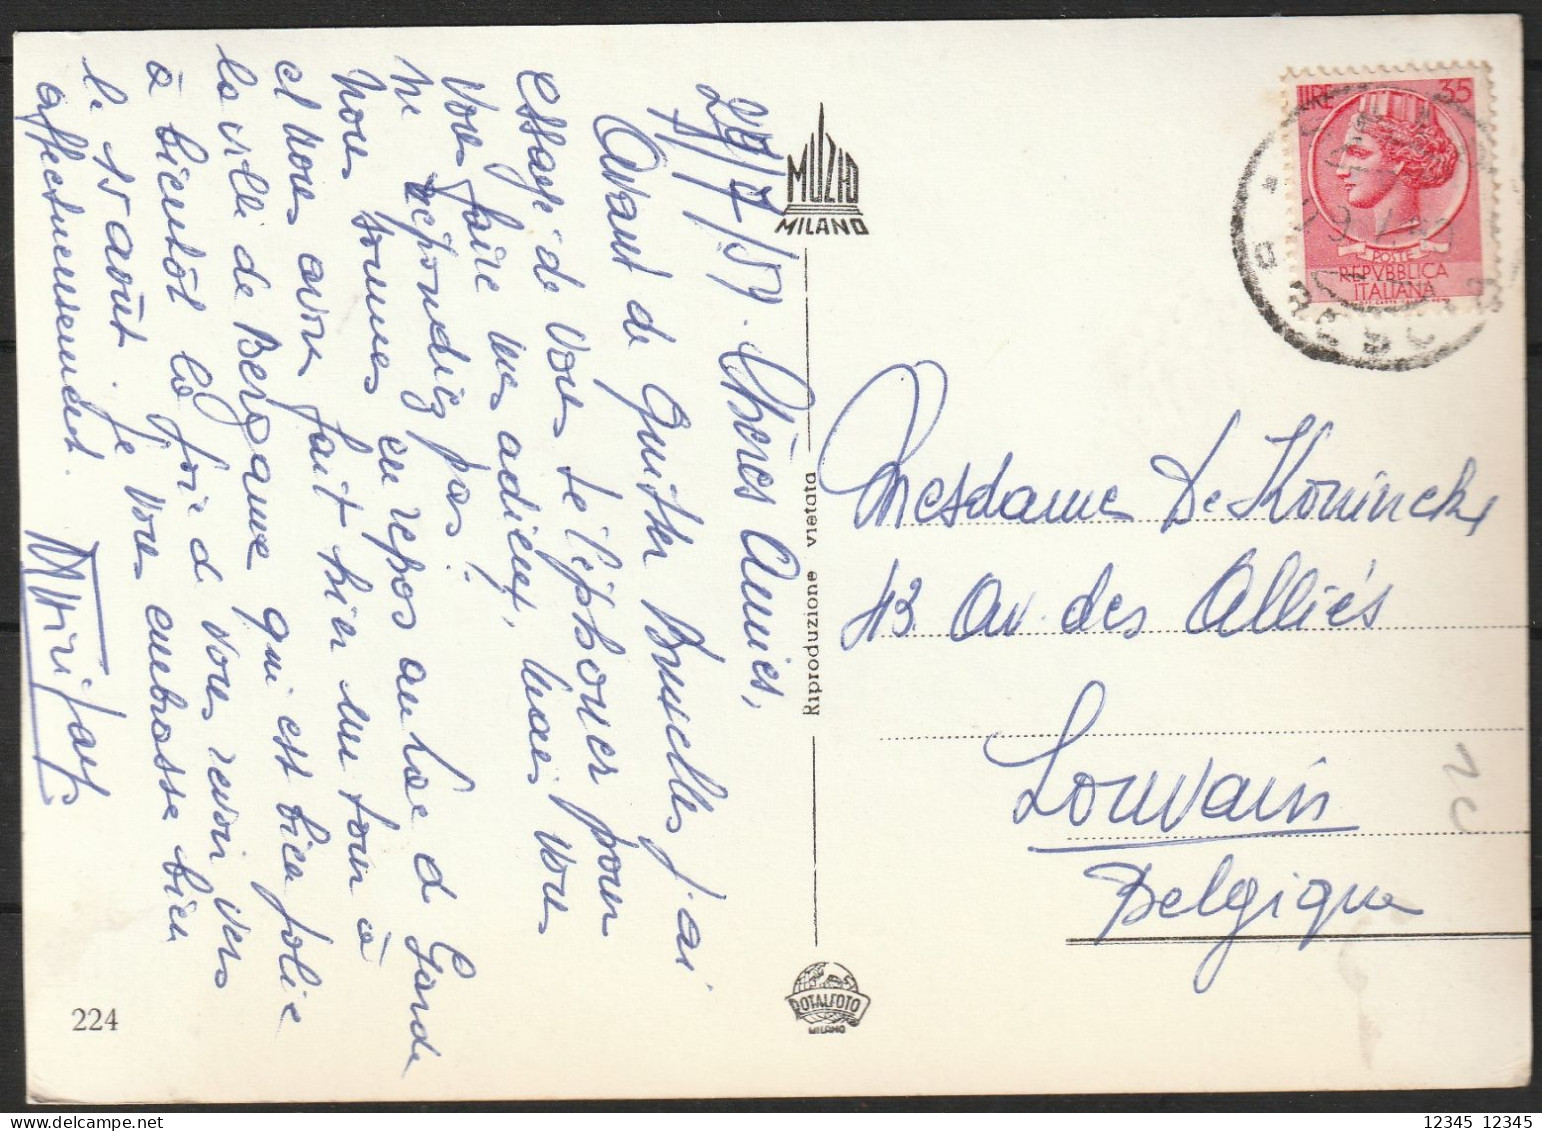 29/7/59. Chères Amies,
Avant de quitter Bruxelles j'ai
essayé de vous téléphoner pour
vous faire mes adieux, mais vous
ne répondiez pas!
Nous sommes en repos au lac d Garde
et nous avons fait hier un tour à
la ville de Bergame qui est bien jolie
à bientôt la joie d vous revoir vers
le 15 août. Je vous embrasse bien
affectueusement.
224
MUZIO
MILANO
Riproduzione vietata
ROTALFOTO
MILANO
LIRE 35
POSTE
REPVBBLICA
ITALIANA
Mesdames De Koninckx
43 av. des Alliés
Louvain
Belgique
12345 12345